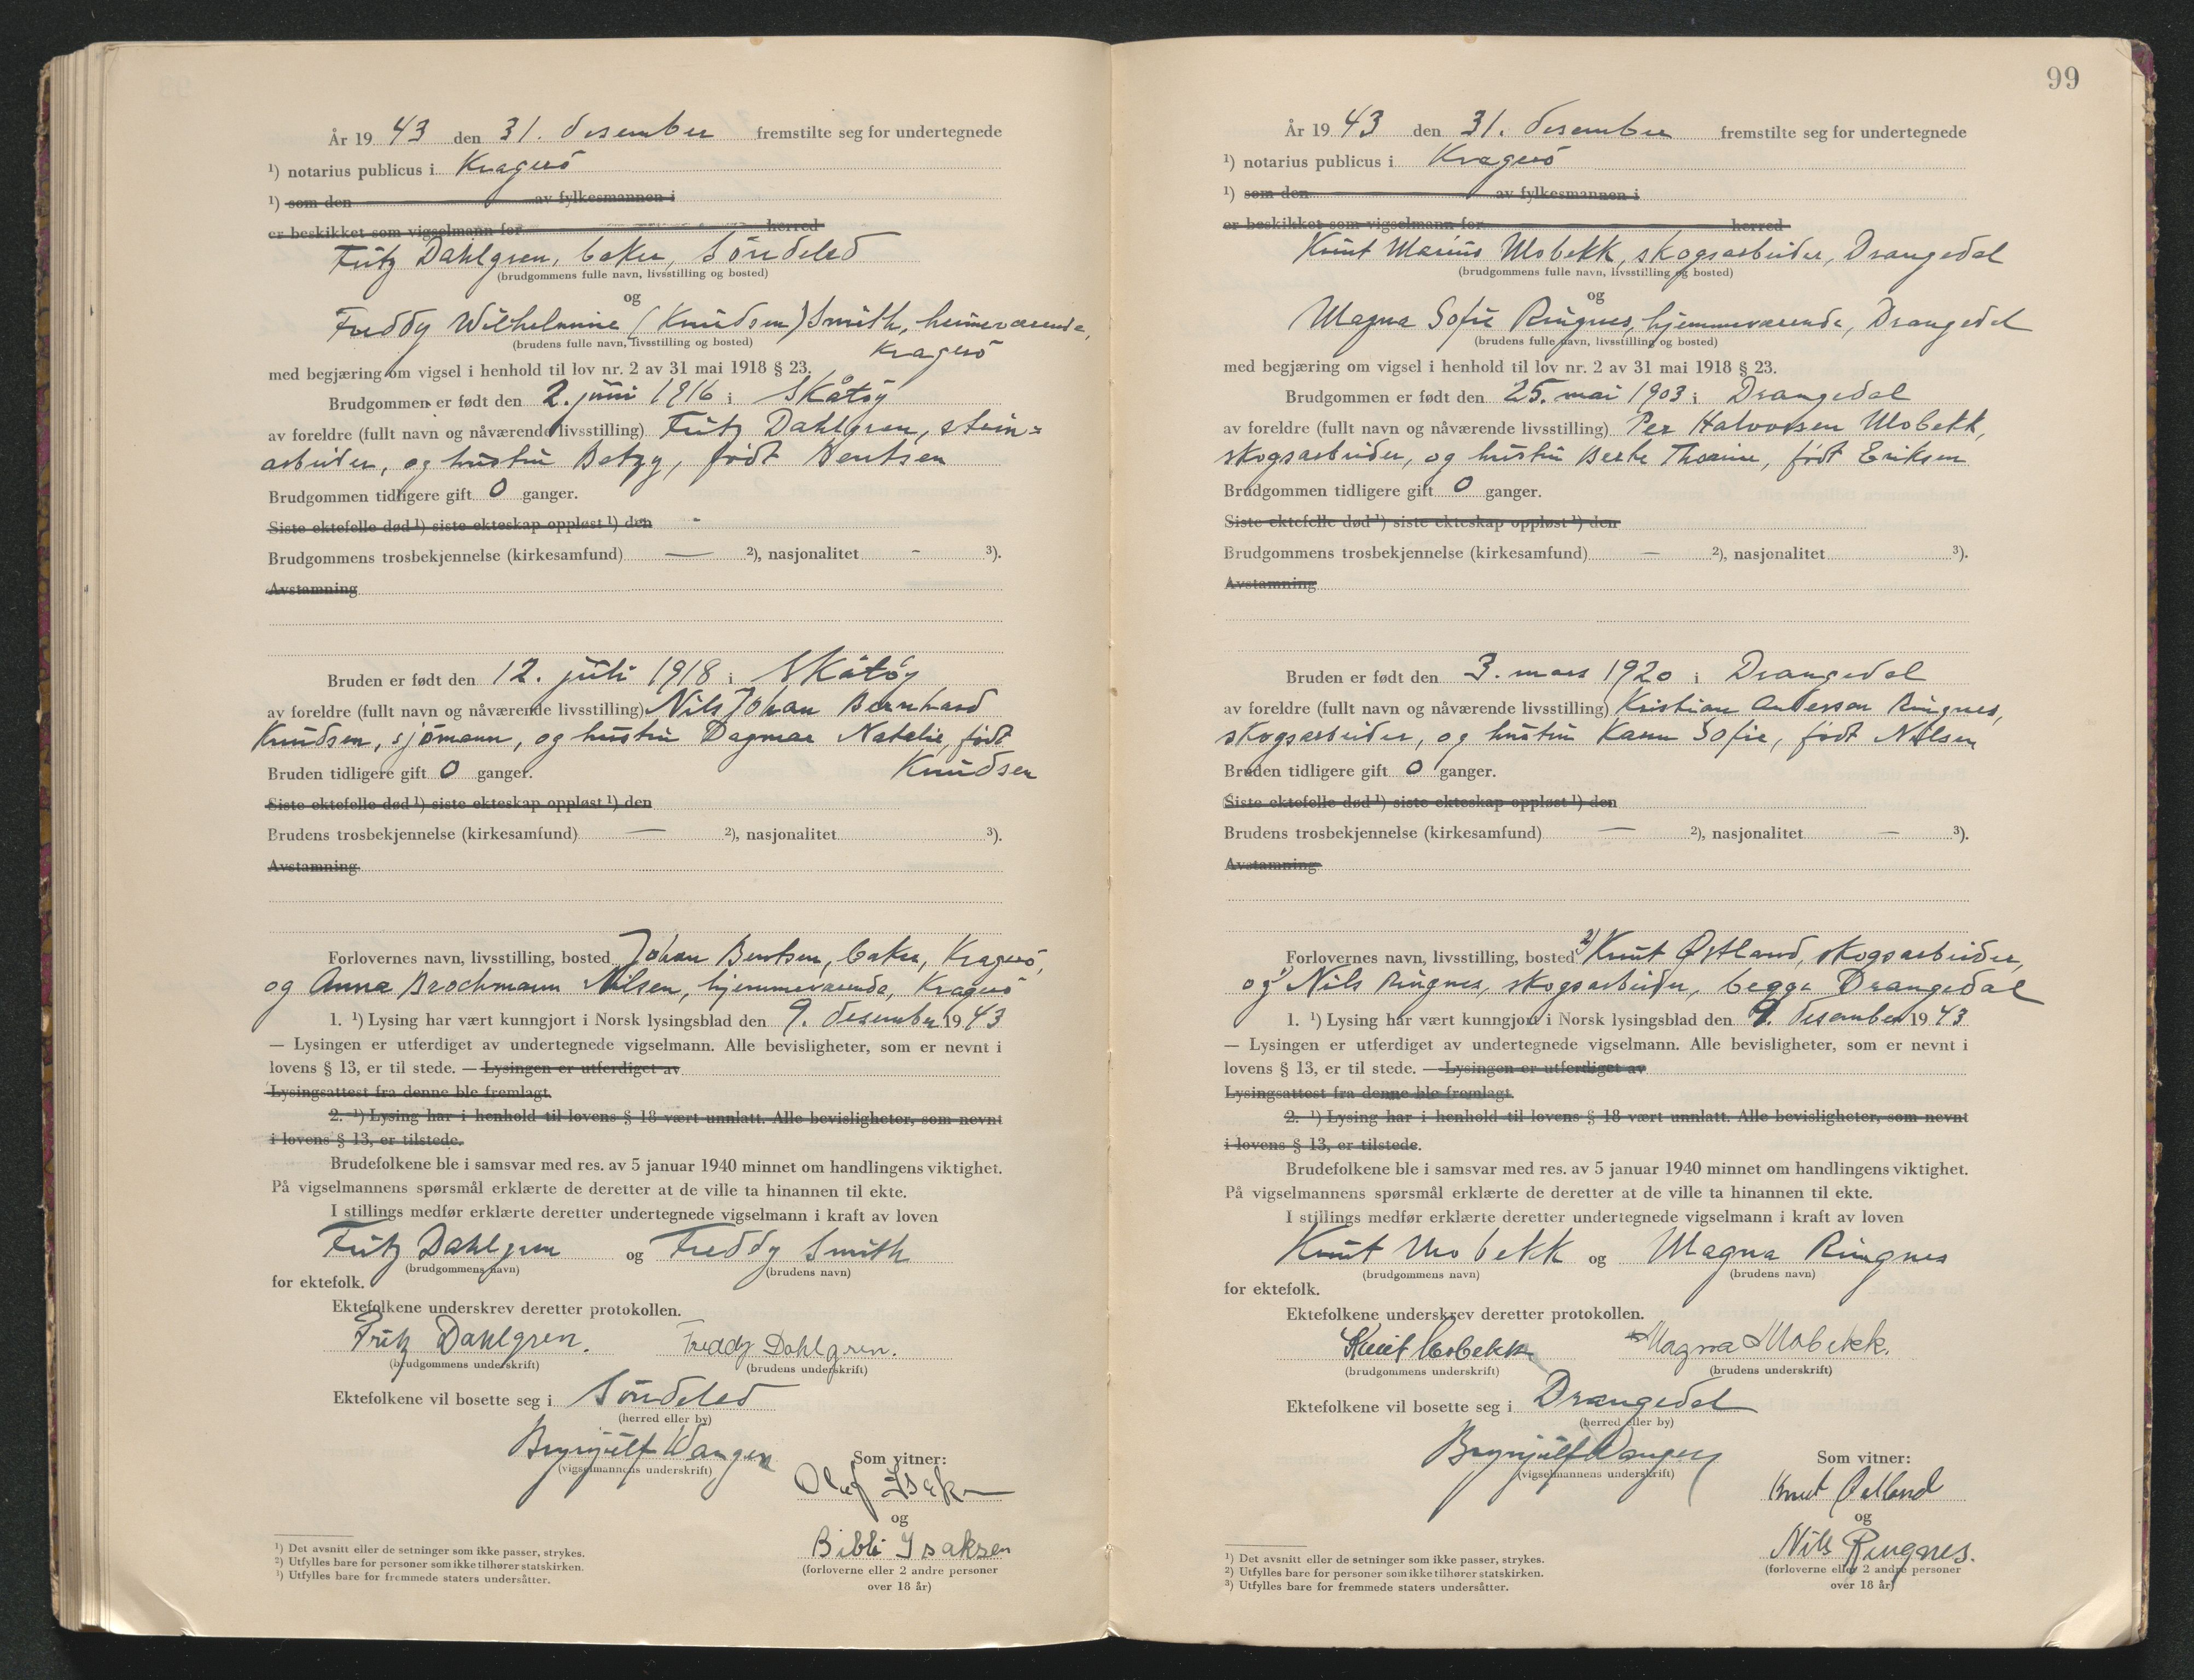 År 19 43 den 31. desember fremstilte seg for undertegnede
¹) notarius publicus i Kragerö
¹) som den av fylkesmannen i
er beskikket som vigselmann for herred
Fritz Dahlgren, baker, Söndeled
(brudgommens fulle navn, livsstilling og bosted)
og
Freddy Wilhelmine (Knudsen) Smith, heimeværende,
(brudens fulle navn, livsstilling og bosted)
Kragerö
med begjæring om vigsel i henhold til lov nr. 2 av 31 mai 1918 § 23.
Brudgommen er født den 2. juni 1916 i Skåtöy
av foreldre (fullt navn og nåværende livsstilling) Fritz Dahlgren, stein=
arbeider, og hustru Betzy, født Bentsen
Brudgommen tidligere gift 0 ganger.
Siste ektefelle død ¹) siste ekteskap oppløst ¹) den -
Brudgommens trosbekjennelse (kirkesamfund) — ²), nasjonalitet - ³).
Avstamning
Bruden er født den 12. juli 1918 i Skåtöy
av foreldre (fullt navn og nåværende livsstilling) Nils Johan Bernhard
Knudsen, sjømann, og hustru Dagmar Natalie, født
Knudsen
Bruden tidligere gift 0 ganger.
Siste ektefelle død ¹) siste ekteskap oppløst ¹) den
Brudens trosbekjennelse (kirkesamfund) — ²), nasjonalitet ³).
Avstamning
Forlovernes navn, livsstilling, bosted Johan Bentsen, baker, Kragerö,
og Anna Brochmann Nilsen, hjemmeværende, Kragerö
1. ¹) Lysing har vært kunngjort i Norsk lysingsblad den 9. desember 19 43
— Lysingen er utferdiget av undertegnede vigselmann. Alle bevisligheter, som er nevnt i
lovens § 13, er til stede. — Lysingen er utferdiget av
Lysingsattest fra denne ble fremlagt.
2. ¹) Lysing har i henhold til lovens § 18 vært unnlatt. Alle bevisligheter, som nevnt
i lovens § 13, er tilstede.
Brudefolkene ble i samsvar med res. av 5 januar 1940 minnet om handlingens viktighet.
På vigselmannens spørsmål erklærte de deretter at de ville ta hinannen til ekte.
I stillings medfør erklærte deretter undertegnede vigselmann i kraft av loven
Fritz Dahlgren og Freddy Smith
(brudgommens navn) (brudens navn)
for ektefolk.
Ektefolkene underskrev deretter protokollen.
Fritz Dahlgren. Freddy Dahlgren.
(brudgommens underskrift) (brudens underskrift)
Ektefolkene vil bosette seg i Söndeled
(herred eller by)
Brynjulf Wangen
(vigselmannens underskrift)
Som vitner:
Olaf
og
Bibbi Isaksen
(forloverne eller 2 andre personer
over 18 år)
¹) Det avsnitt eller de setninger som ikke passer, strykes.
²) Utfylles bare for personer som ikke tilhører statskirken.
¹) Utfylles bare for fremmede staters undersåtter.
99
År 19 43 den 31. desember fremstilte seg for undertegnede
¹) notarius publicus i Kragerö
¹) som den av fylkesmannen i
er beskikket som vigselmann for herred
Knut Marius Mobekk, skogsarbeider, Drangedal
(brudgommens fulle navn, livsstilling og bosted)
og
Magna Sofie Ringnes, hjemmeværende, Drangedal
(brudens fulle navn, livsstilling og bosted)
med begjæring om vigsel i henhold til lov nr. 2 av 31 mai 1918 § 23.
Brudgommen er født den 25. mai 1903 i Drangedal
av foreldre (fullt navn og nåværende livsstilling) Per Halvorsen Mobekk,
skogsarbeider, og hustru Berte Thorine, født Eriksen
Brudgommen tidligere gift 0 ganger.
Siste ektefelle død ¹) siste ekteskap oppløst ¹) den
Brudgommens trosbekjennelse (kirkesamfund) — ²), nasjonalitet ³).
Avstamning
Bruden er født den 3. mars 1920 i Drangedal
av foreldre (fullt navn og nåværende livsstilling) Kristian Andersen Ringnes,
skogsarbeider, og hustru Karen Sofie, født Nilsen
Bruden tidligere gift 0 ganger.
Siste ektefelle død ¹) siste ekteskap oppløst ¹) den
Brudens trosbekjennelse (kirkesamfund) — ²), nasjonalitet — ³).
Avstamning
Forlovernes navn, livsstilling, bosted 2) Knut Østland, skogsarbeider,
og 1) Nils Ringnes, skogsarbeider, begge Drangedal
1. ¹) Lysing har vært kunngjort i Norsk lysingsblad den 9. desember 19 43
— Lysingen er utferdiget av undertegnede vigselmann. Alle bevisligheter, som er nevnt i
lovens § 13, er til stede. — Lysingen er utferdiget av
Lysingsattest fra denne ble fremlagt.
2. ¹) Lysing har i henhold til lovens § 18 vært unnlatt. Alle bevisligheter, som nevnt
i lovens § 13, er tilstede.
Brudefolkene ble i samsvar med res. av 5 januar 1940 minnet om handlingens viktighet.
På vigselmannens spørsmål erklærte de deretter at de ville ta hinannen til ekte.
I stillings medfør erklærte deretter undertegnede vigselmann i kraft av loven
Knut Mobekk og Magna Ringnes
(brudgommens navn) (brudens navn)
for ektefolk.
Ektefolkene underskrev deretter protokollen.
Knut Mobekk Magna Mobekk.
(brudgommens underskrift) (brudens underskrift)
Ektefolkene vil bosette seg i Drangedal
(herred eller by)
Brynjulf Wangen
(vigselmannens underskrift)
Som vitner:
Knut Østland
og
Nils Ringnes.
(forloverne eller 2 andre personer
over 18 år)
¹) Det avsnitt eller de setninger som ikke passer, strykes.
²) Utfylles bare for personer som ikke tilhører statskirken.
³) Utfylles bare for fremmede staters undersåtter.